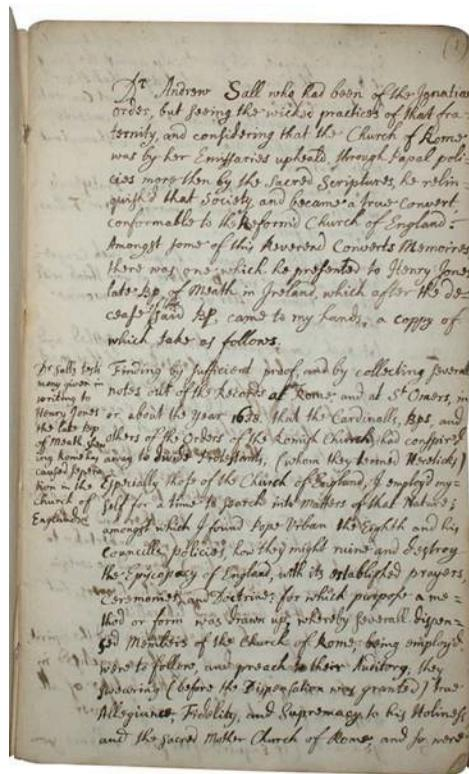 (1)
Dr Andrew Sall who had been of the Ignatian
order, but seeing the wicked practices of that fra=
ternity, and considering that the Church of Rome
was by her Emissaries upheald, through Papal poli=
cies more then by the Sacred Scriptures, he relin=
quish'd that Society, and became a true Convert
conformable to the Reformed Church of England:
Amongst some of this Reverend Converts Memoires
there was one which he presented to Henry Jones
late Bp of Meath in Ireland, which after the de=
cease of the said Bp, came to my hands, a coppy of
which take as follows.
Dr Salls testi
mony given in
writing to
Henry Jones
the late Bp
of Meath
ing Rome
caused separa
tion in the
Church of
England
Finding by sufficient proof, and by collecting severall
notes out of the Records at Rome, and at St Omers, in
or about the Year 1638. that the Cardinalls, Bps, and
others of the Orders of the Romish Church, had conspir'd
a way to divide Protestants, (whom they termed Hereticks)
Especially those of the Church of England, I employd my=
self for a time to search into Matters of that Nature;
amongst which I found Pope Urban the Eighth and his
Councills policies, how they might ruine and destroy
the Episcopacy of England, with its established prayers
Ceremonies and Doctrine; for which purpose a me=
thod or form was drawn up, whereby severall dispen=
sed Members of the Church of Rome, being employd
were to follow, and preach to their Auditory, they
swearing (before the Dispensation was granted) true
Allegiance, Fidelity, and Supremacy to his Holiness
and the sacred Mother Church of Rome, and so were